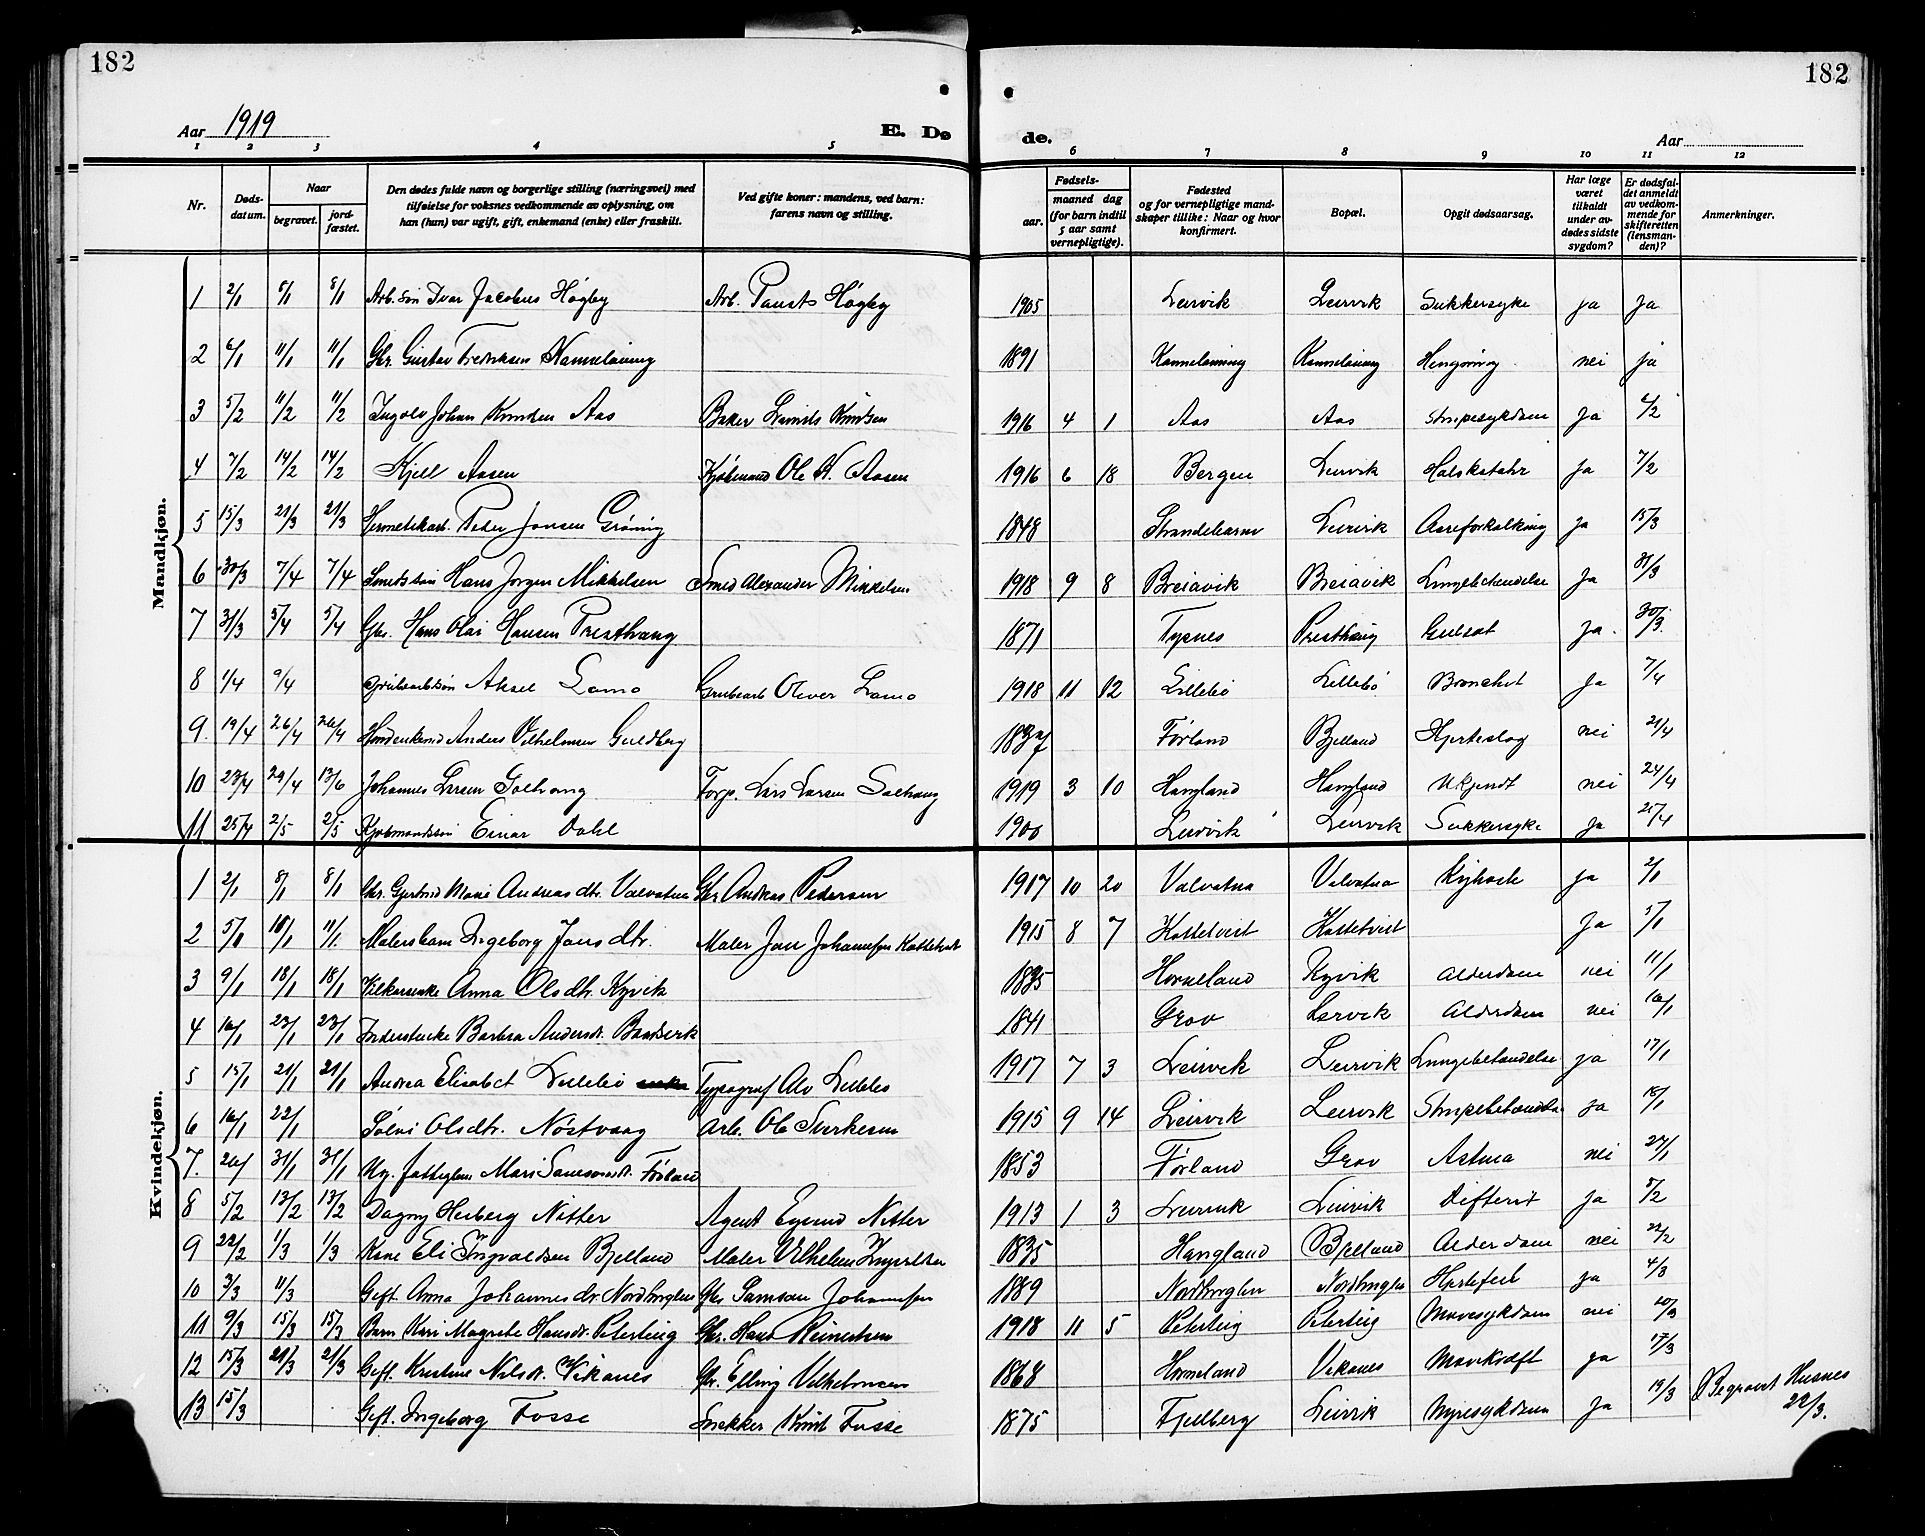 182
182
Aar 1919
E. Dø
de.
Aar
1 2 3 4 5 6 7 8 9 10 11 12
Nr.
Døds-
datum.
Naar
begravet.
jord-
fæstet.
Den dødes fulde navn og borgerlige stilling (næringsvei) med
tilføielse for voksnes vedkommende av oplysning, om
han (hun) var ugift, gift, enkemand (enke) eller fraskilt.
Ved gifte koner: mandens, ved barn:
farens navn og stilling.
Fødsels-
aar.
maaned dag
(for barn indtil
5 aar samt
vernepligtige).
Fødested
og for vernepligtige mand-
skaper tillike: Naar og hvor
konfirmert.
Bopæl.
Opgit dødsaarsag.
Har læge
været
tilkaldt
under av-
dødes sidste
sygdom?
Er dødsfal-
det anmeldt
av vedkom-
mende for
skifteretten
(lensman-
den)?
Anmerkninger.
Mandkjøn.
1 2/1 8/1 8/1 Arb. søn Ivar Jacobus Høgby Arb. Høgby 1905 Leirvik Leirvik Sukkersyke ja ja
2 6/1 11/1 11/1 Gbr. Gustav Fredriksen 1891 nei ja
3 5/2 11/2 11/2 Ingolv Johan Knudsen Aas Baker Knutsen 1916 4 1 Aas Aas Strupesykdom ja 6/2
4 7/2 14/2 14/2 Kjell Aasen Kjøbmand Ole K. Aasen 1916 6 18 Bergen Leirvik Halskatahr ja 7/2
5 15/3 21/3 21/3 Hermetikarb. Peder Jonsen Grøning 1848 Strandebarm Leirvik Aareforkalkning ja 15/3
6 30/3 7/4 7/4 Smedsøn Hans Jørgen Mikkelsen Smed Alexander Mikkelsen 1918 9 8 Breiavik Breiavik Lungebetendelse ja 31/3
7 31/3 5/4 5/4 Gbr. Hans Olai Hansen Presthaug 1871 Tysnes Presthaug Gulsot ja. 30/3.
8 1/4 9/4 Grubearb.søn Aksel Lamo Grubearb Oliver Lamo 1918 11 12 Lillebø Lillebø Bronchit ja 7/4
9. 19/4 26/4 26/4 Anders Vilhelmsen Guldberg 1837 Førland Bjelland Hjerteslag nei 21/4
10 23/4 29/4 13/6 Johannes Larsen Forp. Lars Larsen 1919 3 10 Haugland Haugland Ukjendt nei 24/4
11 25/4 2/5 2/5 Kjøbmandssøn Einar Dahl 1900 Leirvik Leirvik Sukkersyke ja 25/4
Kvindekjøn.
1 2/1 8/1 8/1 Gbr. Gjertrud Marie Andreasdtr. Valvatna Gbr Andreas Pedersen 1917 10 20 Valvatna Valvatna Kighoste ja 2/1
2 5/1 10/1 11/1. Malersbarn Ingeborg Jansdtr. Maler Jan Johannesen Kattetvedt 1915 8 7 Kattetveit Kattetveit ja 5/1
3 9/1 18/1 18/1 Kilkarsenke Anna Olsdtr. Kyvik 1835 Horneland Kyvik Alderdom nei 11/1
4 16/1 23/1 23/1 Barbra Andersdr. 1841 Grov Lervik Alderdom nei 16/1
5 15/1 21/1 21/1 Andrea Elisabet Lillebø Typograf Alv Lillebø 1917 7 3 Leirvik Leirvik Lungebetendelse ja 17/1
6 16/1 22/1 Sølvi Olsdtr. Nøstvaag Arb. Ole Sverkesen 1915 9 14 Leirvik Leirvik ja 18/1
7. 31/1 31/1 Ug. fattiglem Mari Samsonsdtr. Førland 1853 Førland Grov Astma nei 27/1
8 5/2 13/2 13/2 Dagny Herberg Nitter Agent Nitter 1913 1 3 Leirvik Leirvik Difterit ja 5/2
9 22/2 1/3 1/3 Kone Eli Ingvaldsen Bjelland Maler Vilhelm Ingvaldsen 1835 Haugland Bjelland Alderdom nei 22/2
10 3/3 11/3 Gift. Anna Johannesdr. Nordhuglen Gbr Samson Johannesen 1889 Nordhuglen Nordhuglen Hjertefeil ja 4/3
11 9/3 15/3 15/3 Barn Kari Magrete Hansdr. Peterteig Gbr. Hans Reinertsen 1918 11 5 Peterteig Peterteig Mavesykdom nei 10/3
12 15/3 21/3 21/3 Gift. Kristine Nilsdr. Vikanes Gbr. Elling Vilhelmsen 1868 Horneland Vikanes Mavekræft ja 17/3
13 15/3 Gift. Ingeborg Fosse Snekker Knut Fosse 1875 Fjelberg Leirvik Nyresykdom ja 19/3 Begravet Husnes
22/3.